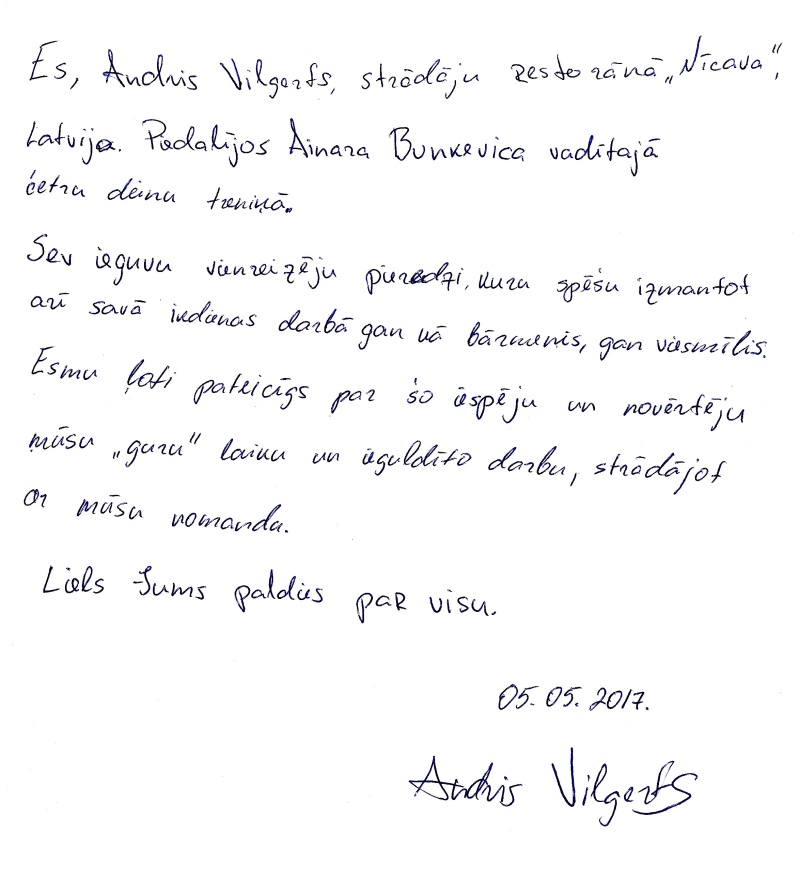 Es, Andris Vilgerts, strādāju restorānā „Nīcava”,
Latvija. Piedalījos Ainara Bunkevica vadītajā
četru dienu treniņā.
Sev ieguvu vienreizēju pieredzi, kuru spēšu izmantot
arī savā ikdienas darbā gan kā bārmenis, gan viesmīlis.
Esmu ļoti pateicīgs par šo iespēju un novērtēju
mūsu „guru” laiku un ieguldīto darbu, strādājot
ar mūsu komandu.
Liels Jums paldies par visu.
05.05.2017.
Andris Vilgerts